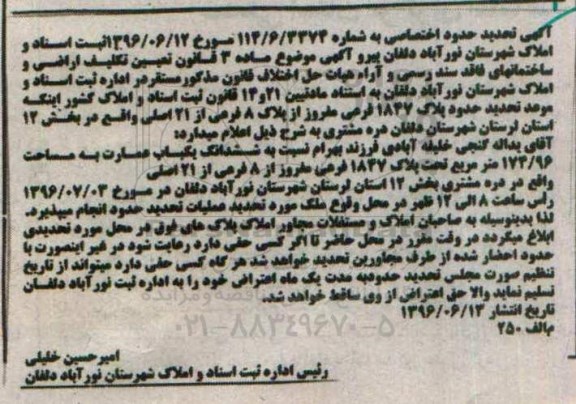 آگهی تحدید حدود اختصاصی به شماره ۱۱۴/۶/۳۳۷۴ مورخ ۱۳۹۶/۰۶/۱۲ثبت اسناد و
املاک شهرستان نورآباد دلفان پیرو آگهی موضوع ماده ۳ قانون تعیین تکلیف اراضی و
ساختمانهای فاقد سند رسمی و آراء هیات حل اختلاف قانون مذکورمستقردر اداره ثبت اسناد و
املاک شهرستان نورآباد دلفان به استناد مادتیین ۲۱و۱۴ قانون ثبت اسناد و املاک کشور اینکه
موعد تحدید حدود پلاک ۱۸۴۷ فرعی مفروز از پلاک ۸ فرعی از ۲۱ اصلی واقع در بخش ۱۲
استان لرستان شهرستان دلفان دره مشتری به شرح ذیل اعلام میدارد:
آقای یداله گنجی خلیفه آبادی فرزند بهرام نسبت به ششدانگ یکباب عمارت به مساحت
۱۷۴/۹۶ متر مربع تحت پلاک ۱۸۴۷ فرعی مفروز از ۸ فرعی از ۲۱ اصلی
واقع در دره مشتری بخش ۱۲ استان لرستان شهرستان نورآباد دلفان در مورخ ۱۳۹۶/۰۷/۰۳
رأس ساعت ۸ الی ۱۲ ظهر در محل وقوع ملک مورد تحدید عملیات تحدید حدود انجام میپذیرد.
لذا بدینوسیله به صاحبان املاک و مستغلات مجاور املاک پلاک های فوق در محل مورد تحدیدی
ابلاغ میگردد در وقت مقرر در محل حاضر تا اگر کسی حقی دارد رعایت شود در غیر اینصورت با
حدود احضار شده از طرف مجاورین تحدید خواهد شد هر گاه کسی حقی دارد میتواند از تاریخ
تنظیم صورت مجلس تحدید حدودبه مدت یک ماه اعتراض خود را به اداره ثبت نورآباد دلفان
تسلیم نماید والا حق اعتراض از وی ساقط خواهد شد.
تاریخ انتشار ۱۳۹۶/۰۶/۱۳
م/الف ۲۵۰
۰۲۱-۸۸۳۴۹۶۷۰-۵
امیرحسین خلیلی
رئیس اداره ثبت اسناد و املاک شهرستان نورآباد دلفان